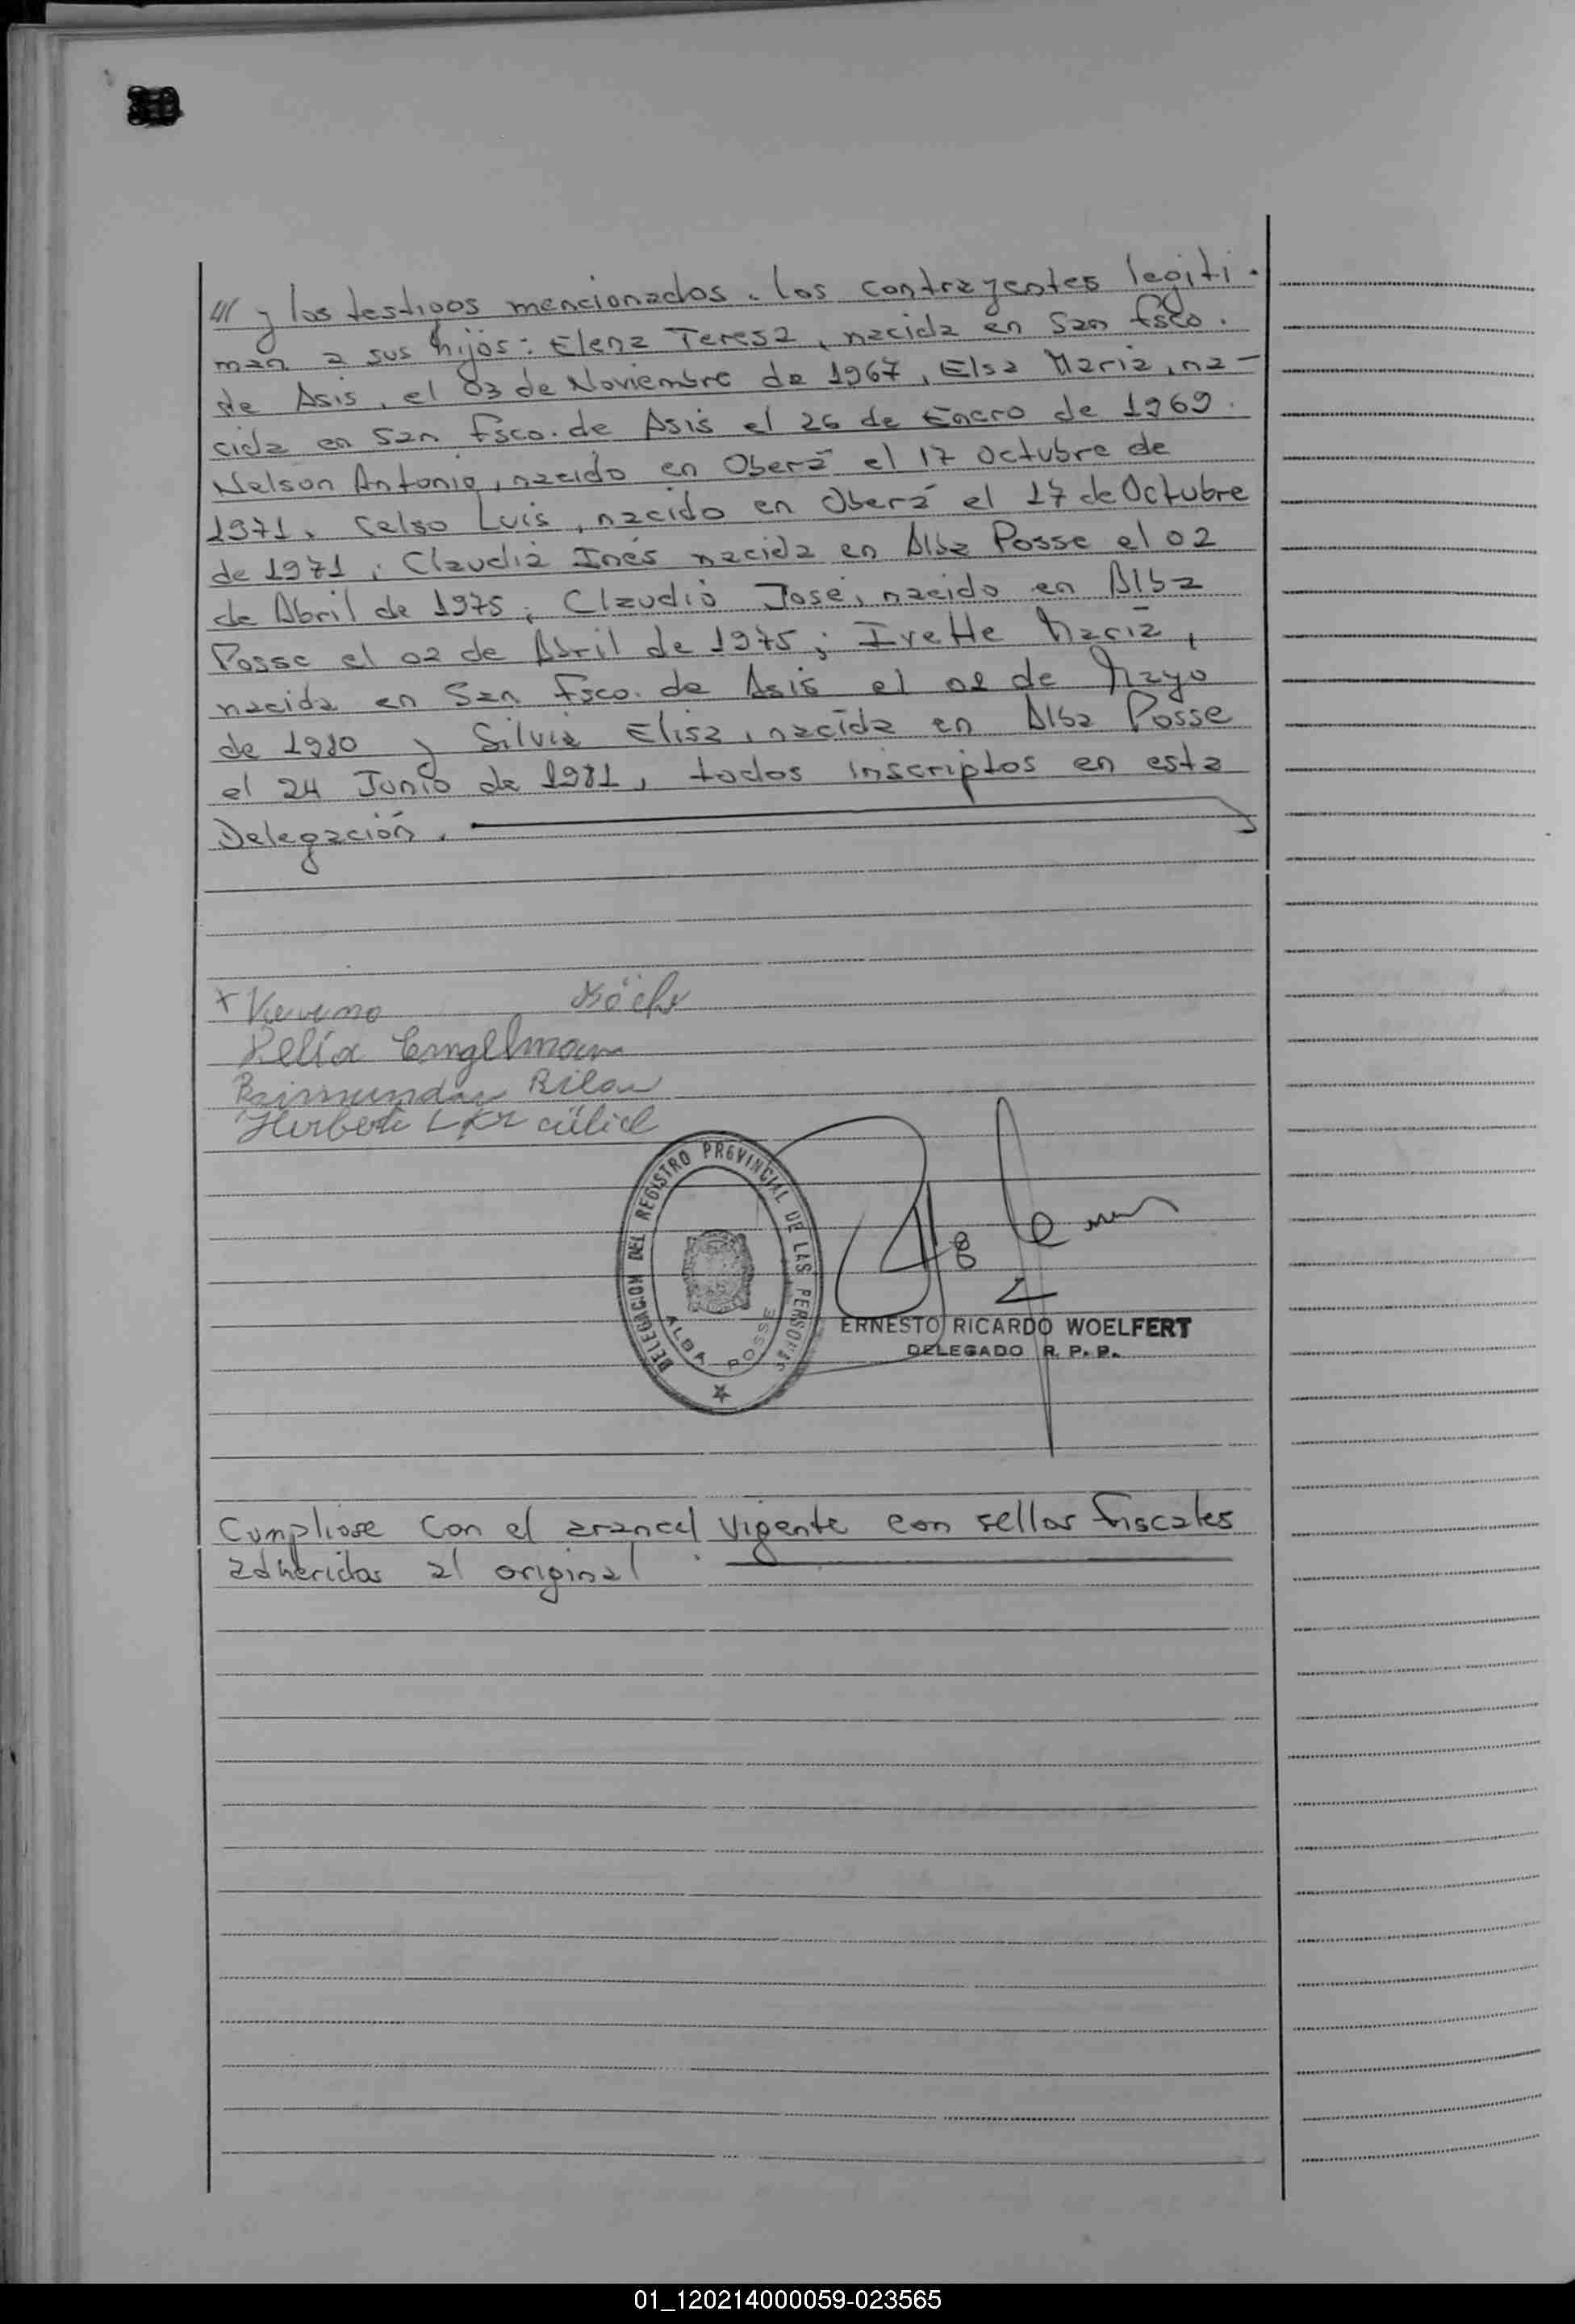 /// y los testigos mencionados. Los contrayentes legiti-
man a sus hijos: Elena Teresa, nacida en San Fsco.
de Asis, el 03 de Noviembre de 1967, Elsa Maria, na-
cida en San Fsco. de Asis el 26 de Enero de 1969.
Nelson Antonio, nacido en Oberá el 17 Octubre de
1971, Celso Luis, nacido en Oberá el 17 de Octubre
de 1971; Claudia Inés nacida en Alba Posse el 02
de Abril de 1975; Claudio José, nacido en Alba
Posse el 02 de Abril de 1975; Ivette Maria,
nacida en San Fsco. de Asis el 02 de Mayo
de 1980 y Silvia Elisa, nacida en Alba Posse
el 24 Junio de 1981, todos inscriptos en esta
Delegación.
+
Engelman
DELEGACION DEL REGISTRO PROVINCIAL DE LAS PERSONAS
ALBA POSSE
ERNESTO RICARDO WOELFERT
DELEGADO R. P. P.
Cumpliose con el arancel vigente con sellos fiscales
adheridos al original.
01_120214000059-023565